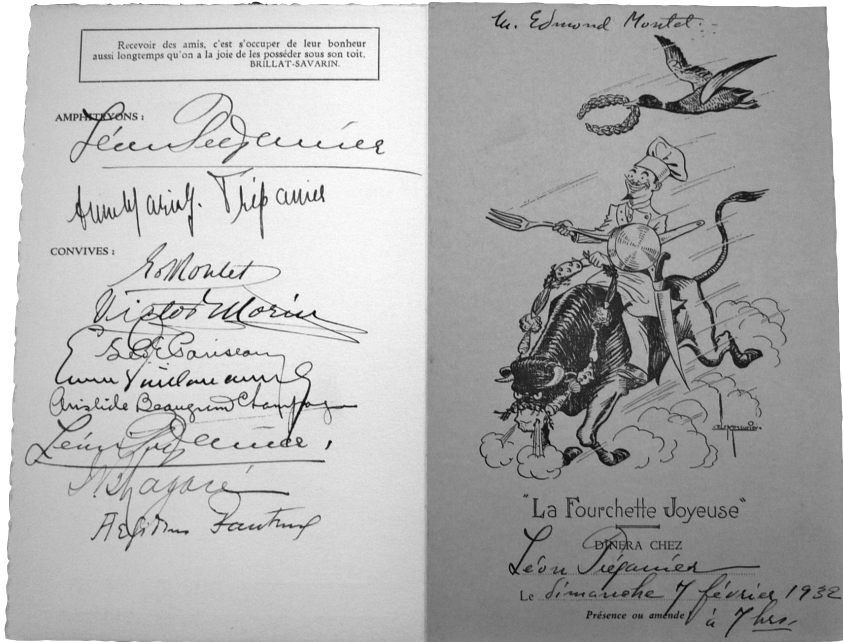 Recevoir des amis, c'est s'occuper de leur bonheur
aussi longtemps qu'on a la joie de les posséder sous son toit.
BRILLAT-SAVARIN.
AMPHITRYONS :
Léon Trépanier
Trépanier
CONVIVES :
Ed Montet
Victor Morin
Aristide Beaugrand Champagne
Léon Trépanier
Aegidius Fauteux
M. Edmond Montet
"La Fourchette Joyeuse"
DÎNERA CHEZ
Léon Trépanier
Le dimanche 7 février 1932
Présence ou amende ! à 7 hrs.